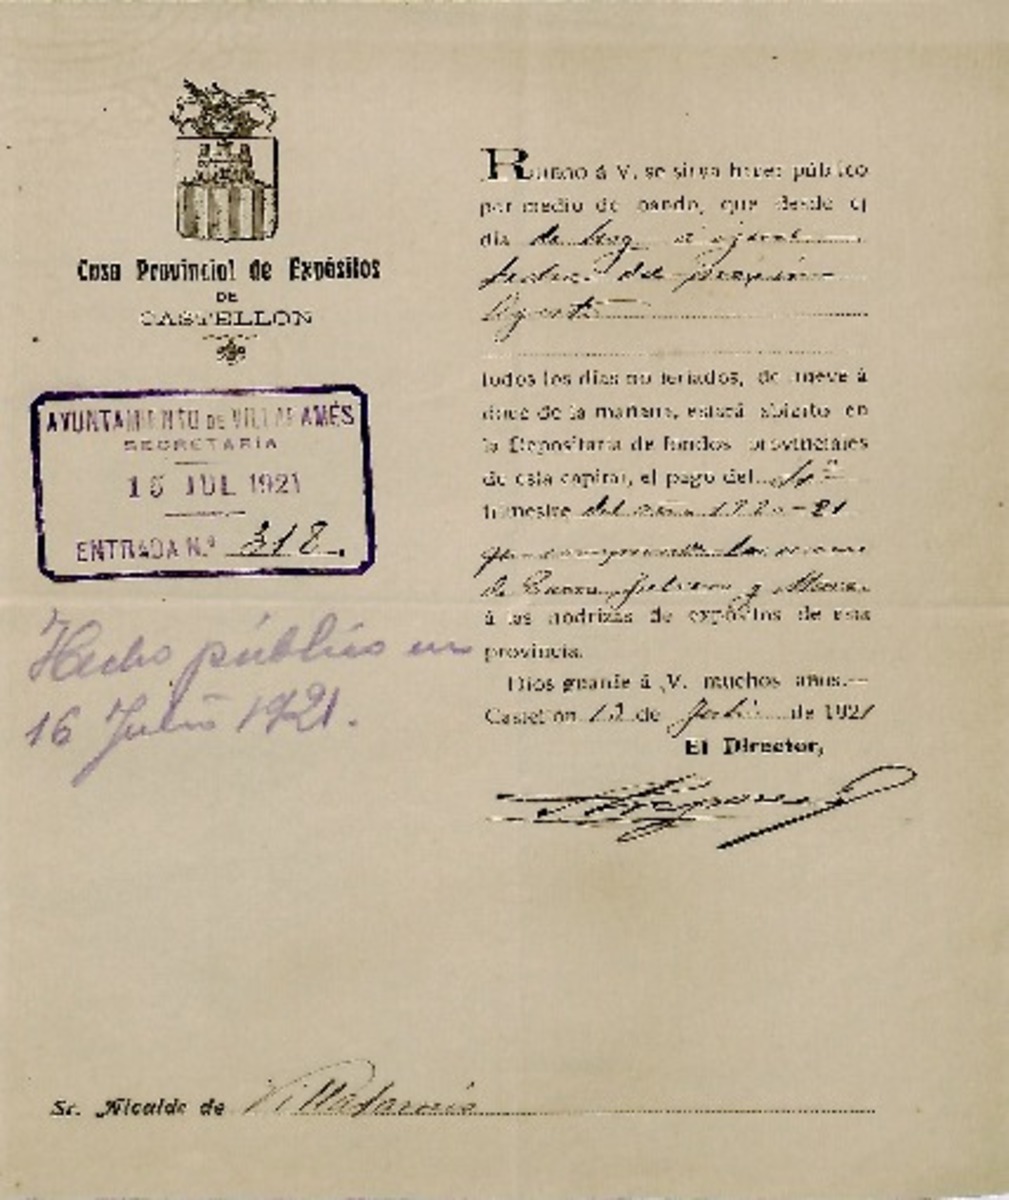 Casa Provincial de Expósitos
DE
CASTELLON
AYUNTAMIENTO DE VILLAFAMÉS
SECRETARÍA
15 JUL 1921
ENTRADA N.º 318.
Hecho público en
16 Julio 1921.
Ruego á V. se sirva hacer público
por medio de bando, que desde el
día de hoy
del próximo
Agosto
todos los días no feriados, de nueve á
doce de la mañana, estará abierto en
la Depositaría de fondos provinciales
de esta capital, el pago del 4º
trimestre del año 1920-21
que comprende los meses
de Enero, Febrero y Marzo
á las nodrizas de expósitos de esta
provincia.
Dios guarde á V. muchos años.—
Castellón 12 de Julio de 1921
El Director,
Sr. Alcalde de Villafamés